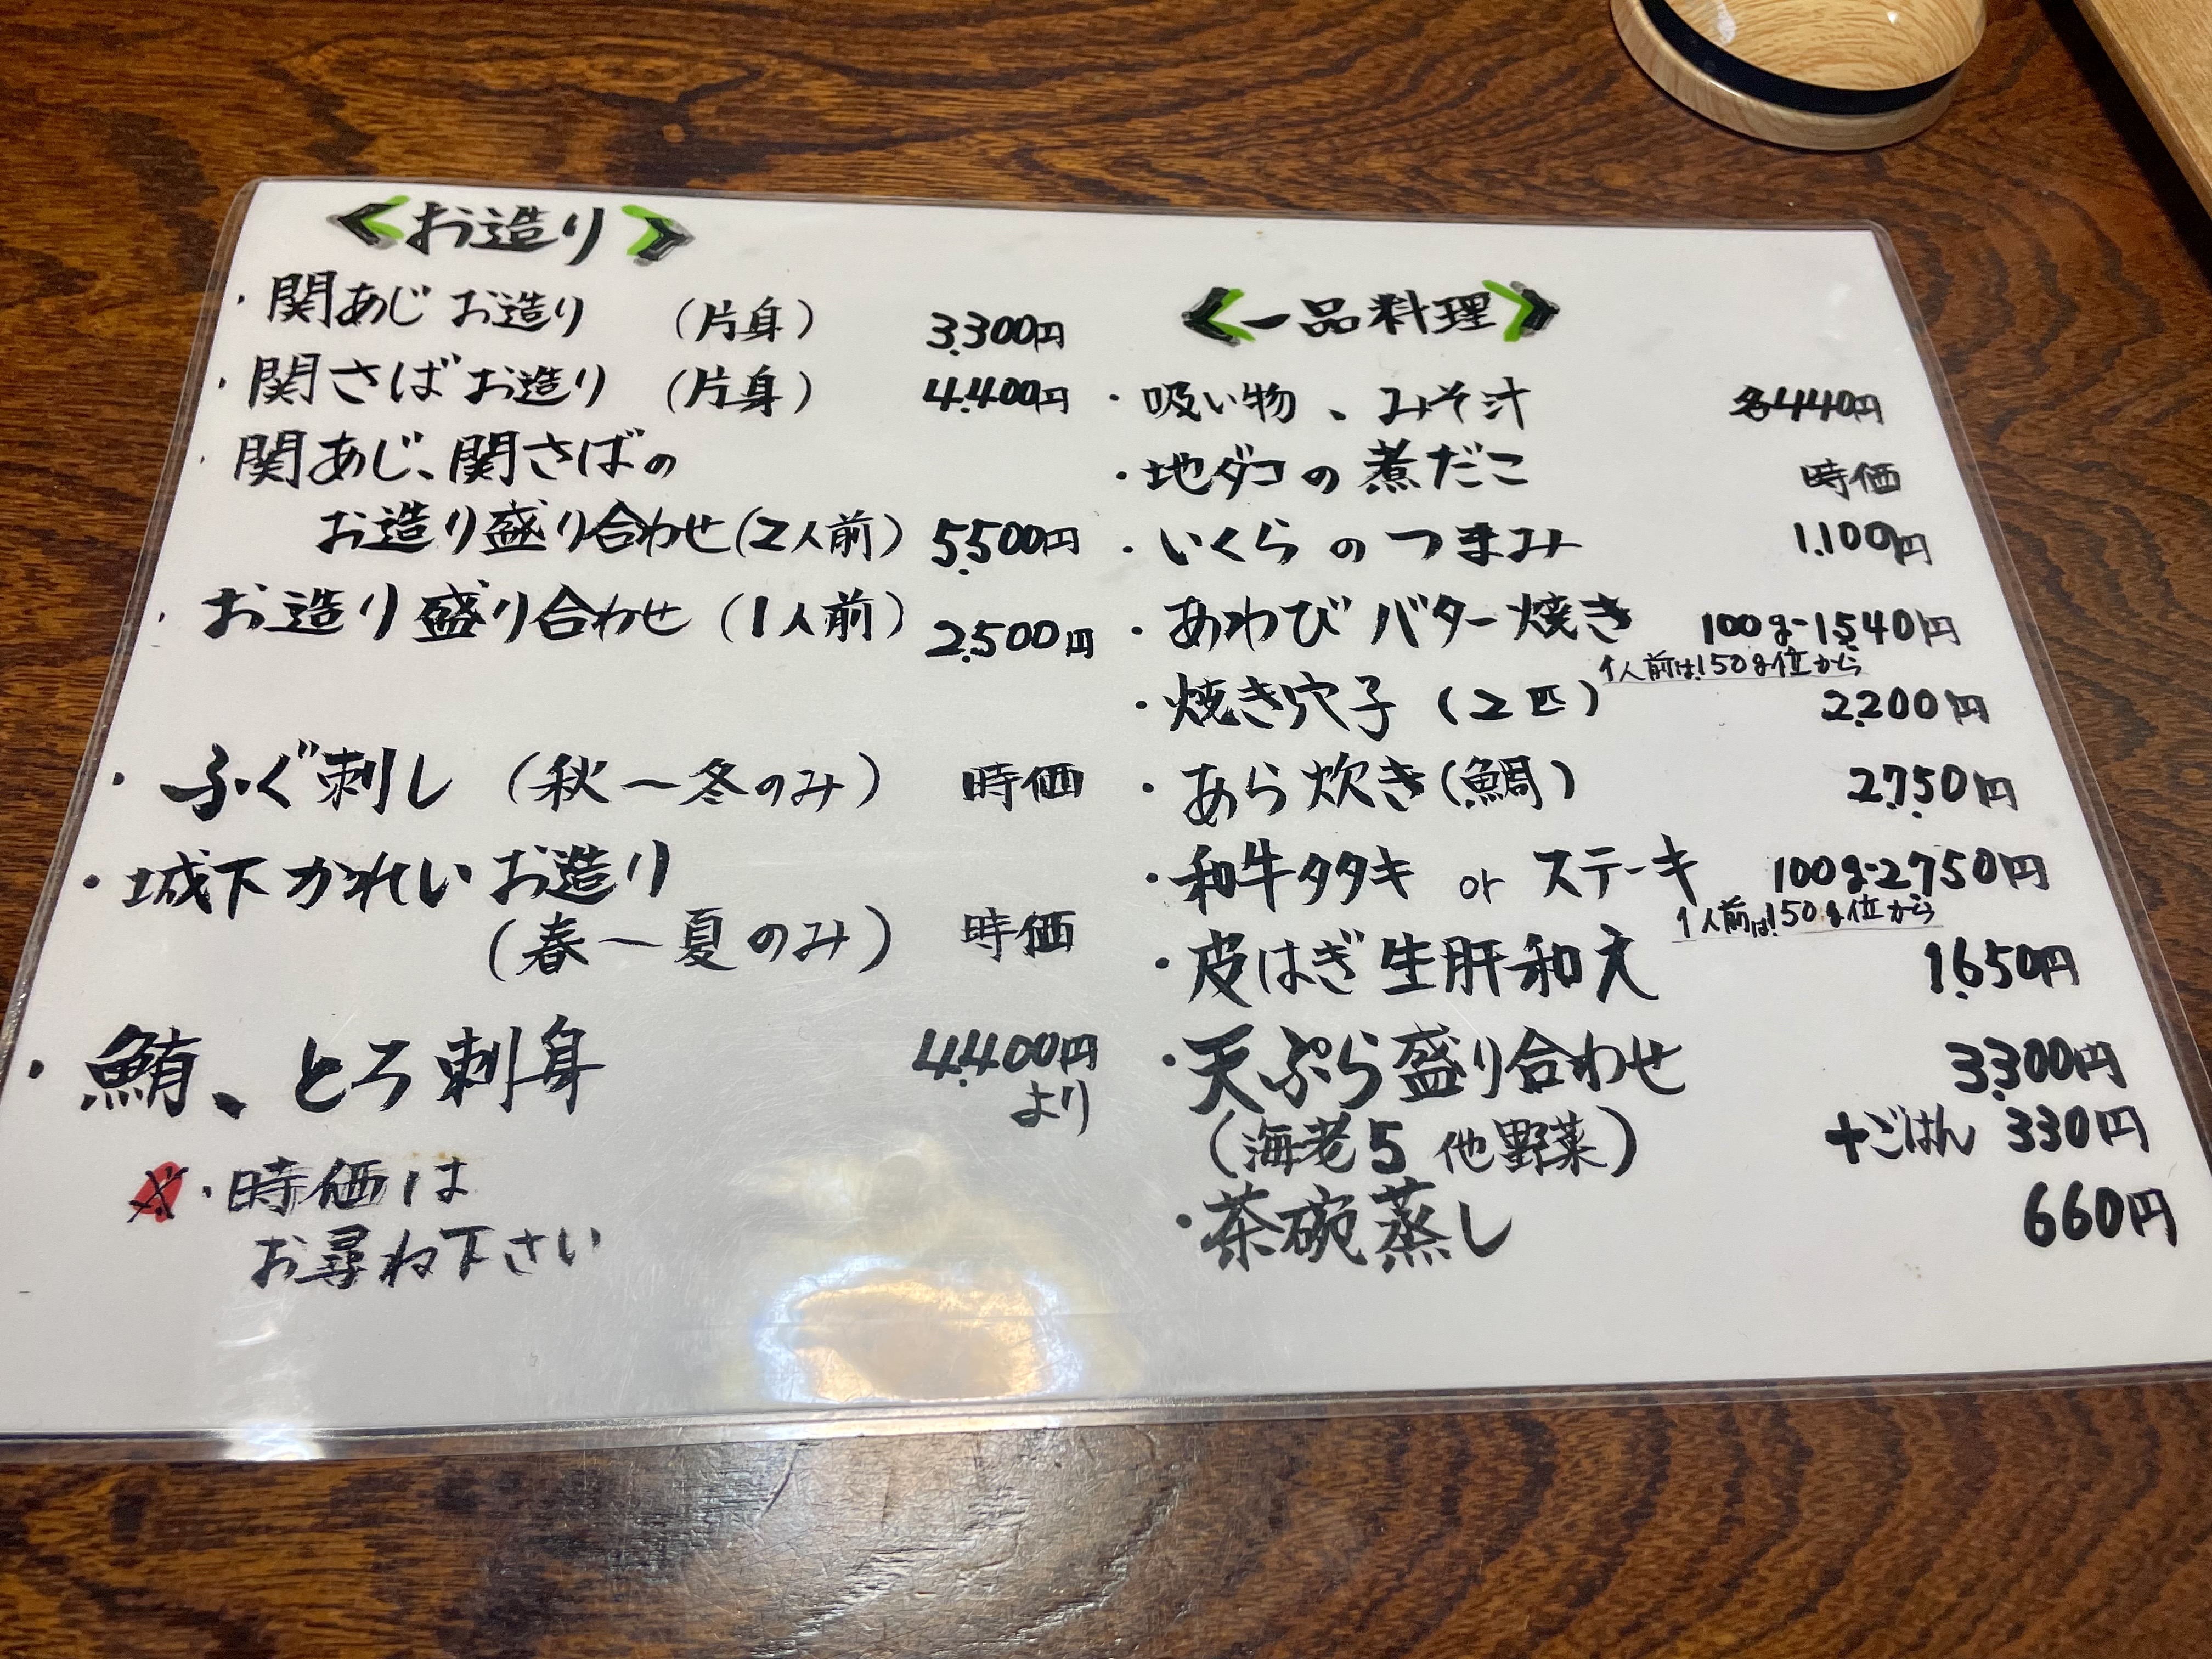 <お造り>
・関あじお造り (片身) 3.300円
・関さばお造り (片身) 4.400円
・関あじ、関さばの
お造り盛り合わせ(2人前) 5.500円
・お造り盛り合わせ (1人前) 2.500円
・ふぐ刺し (秋〜冬のみ) 時価
・城下かれいお造り
(春〜夏のみ) 時価
・鮪、とろ刺身 4.400円
より
※・時価は
お尋ね下さい
<一品料理>
・吸い物、みそ汁 各440円
・地ダコの煮だこ 時価
・いくらのつまみ 1.100円
・あわびバター焼き 100g-1.540円
1人前は150g位から
・焼き穴子 (2匹) 2.200円
・あら炊き(鯛) 2.750円
・和牛タタキ or ステーキ 100g-2.750円
1人前は150g位から
・皮はぎ生肝和え 1.650円
・天ぷら盛り合わせ 3.300円
(海老5 他野菜) +ごはん 330円
・茶碗蒸し 660円